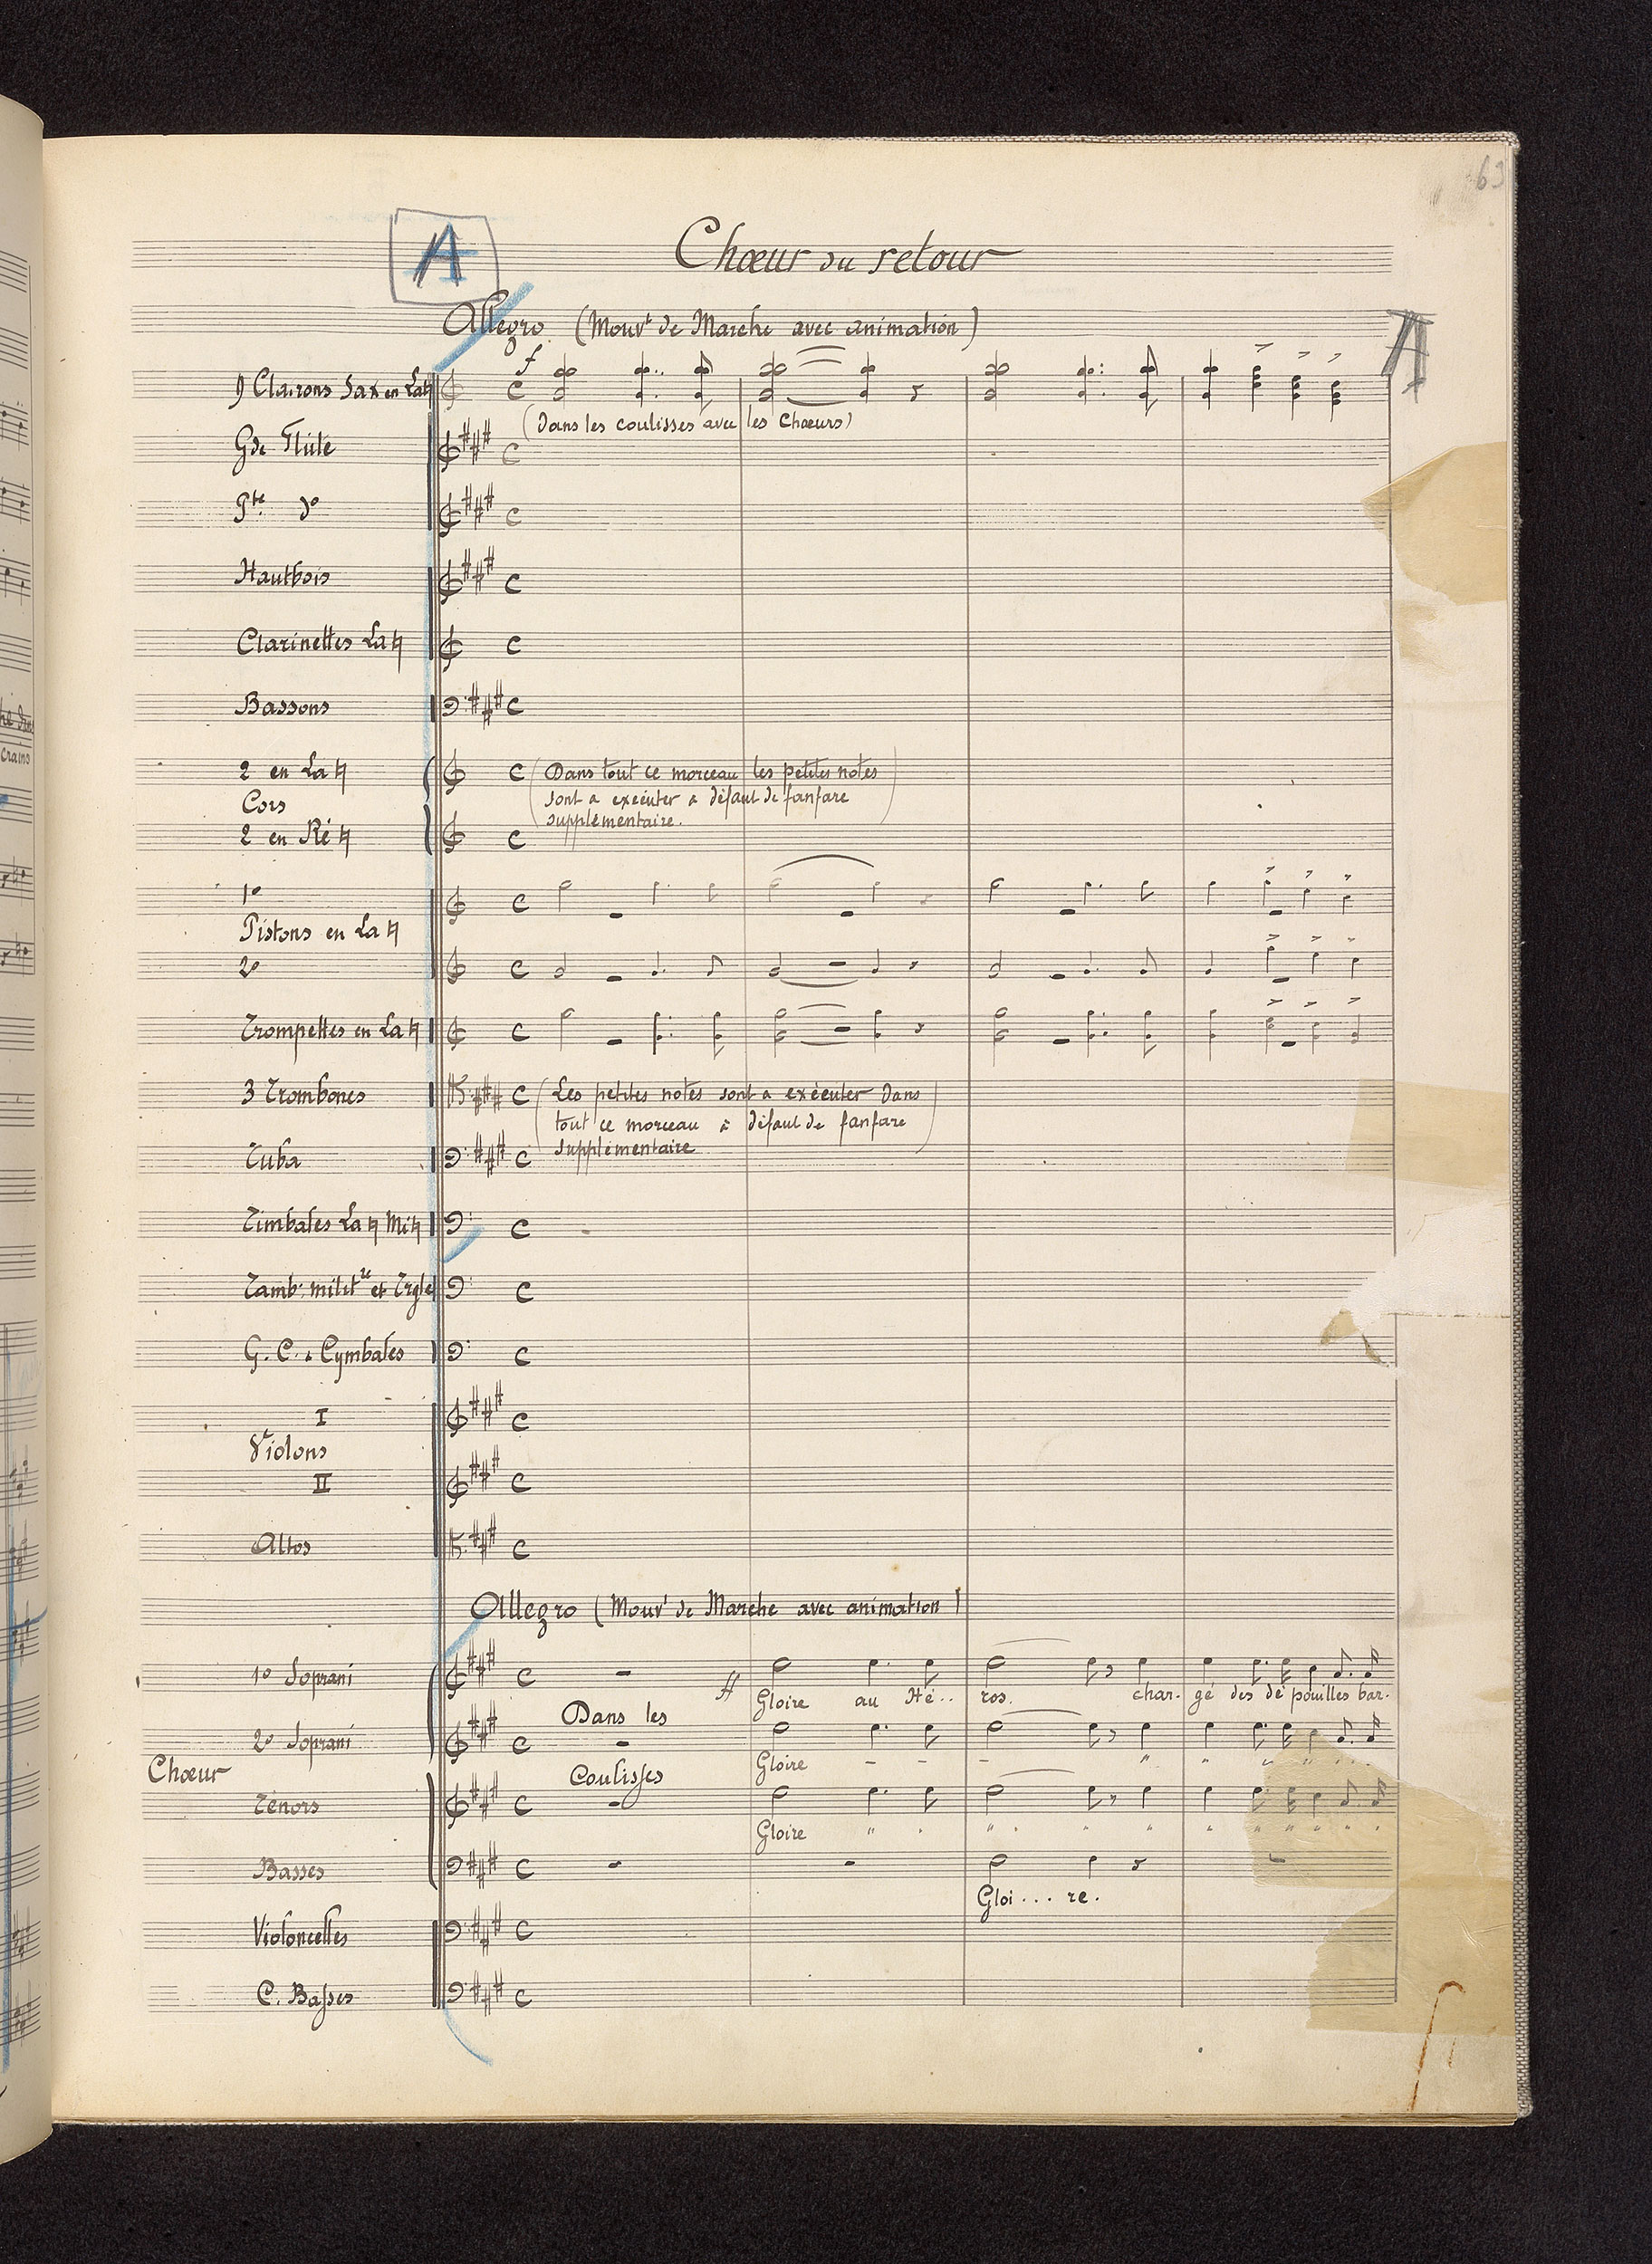 63
A
Chœur du retour
Allegro (Mouvt de Marche avec animation)
A
9 Clairons Sax en La♮
f
(Dans les coulisses avec les Chœurs)
Gde Flûte
Pte do
Hautbois
Clarinettes La♮
Bassons
2 en La♮
Cors
2 en Ré♮
(Dans tout ce morceau les petites notes
sont a exécuter a défaut de fanfare
supplémentaire.)
1o
Pistons en La♮
2o
Trompettes en La♮
3 Trombones
(Les petites notes sont a exécuter dans
tout ce morceau à défaut de fanfare
supplémentaire)
Tuba
Timbales La♮ Mi♮
Tamb. militre et Trgle
G. C. & Cymbales
I
Violons
II
Altos
Allegro (Mouvt de Marche avec animation)
1o Soprani
ff
Gloire au Hé.. ros. char. gé des dé pouilles bar.
Dans les
2o Soprani
Gloire
Chœur
Coulisses
Tenors
Gloire
Basses
Gloi... re.
Violoncelles
C. Basses